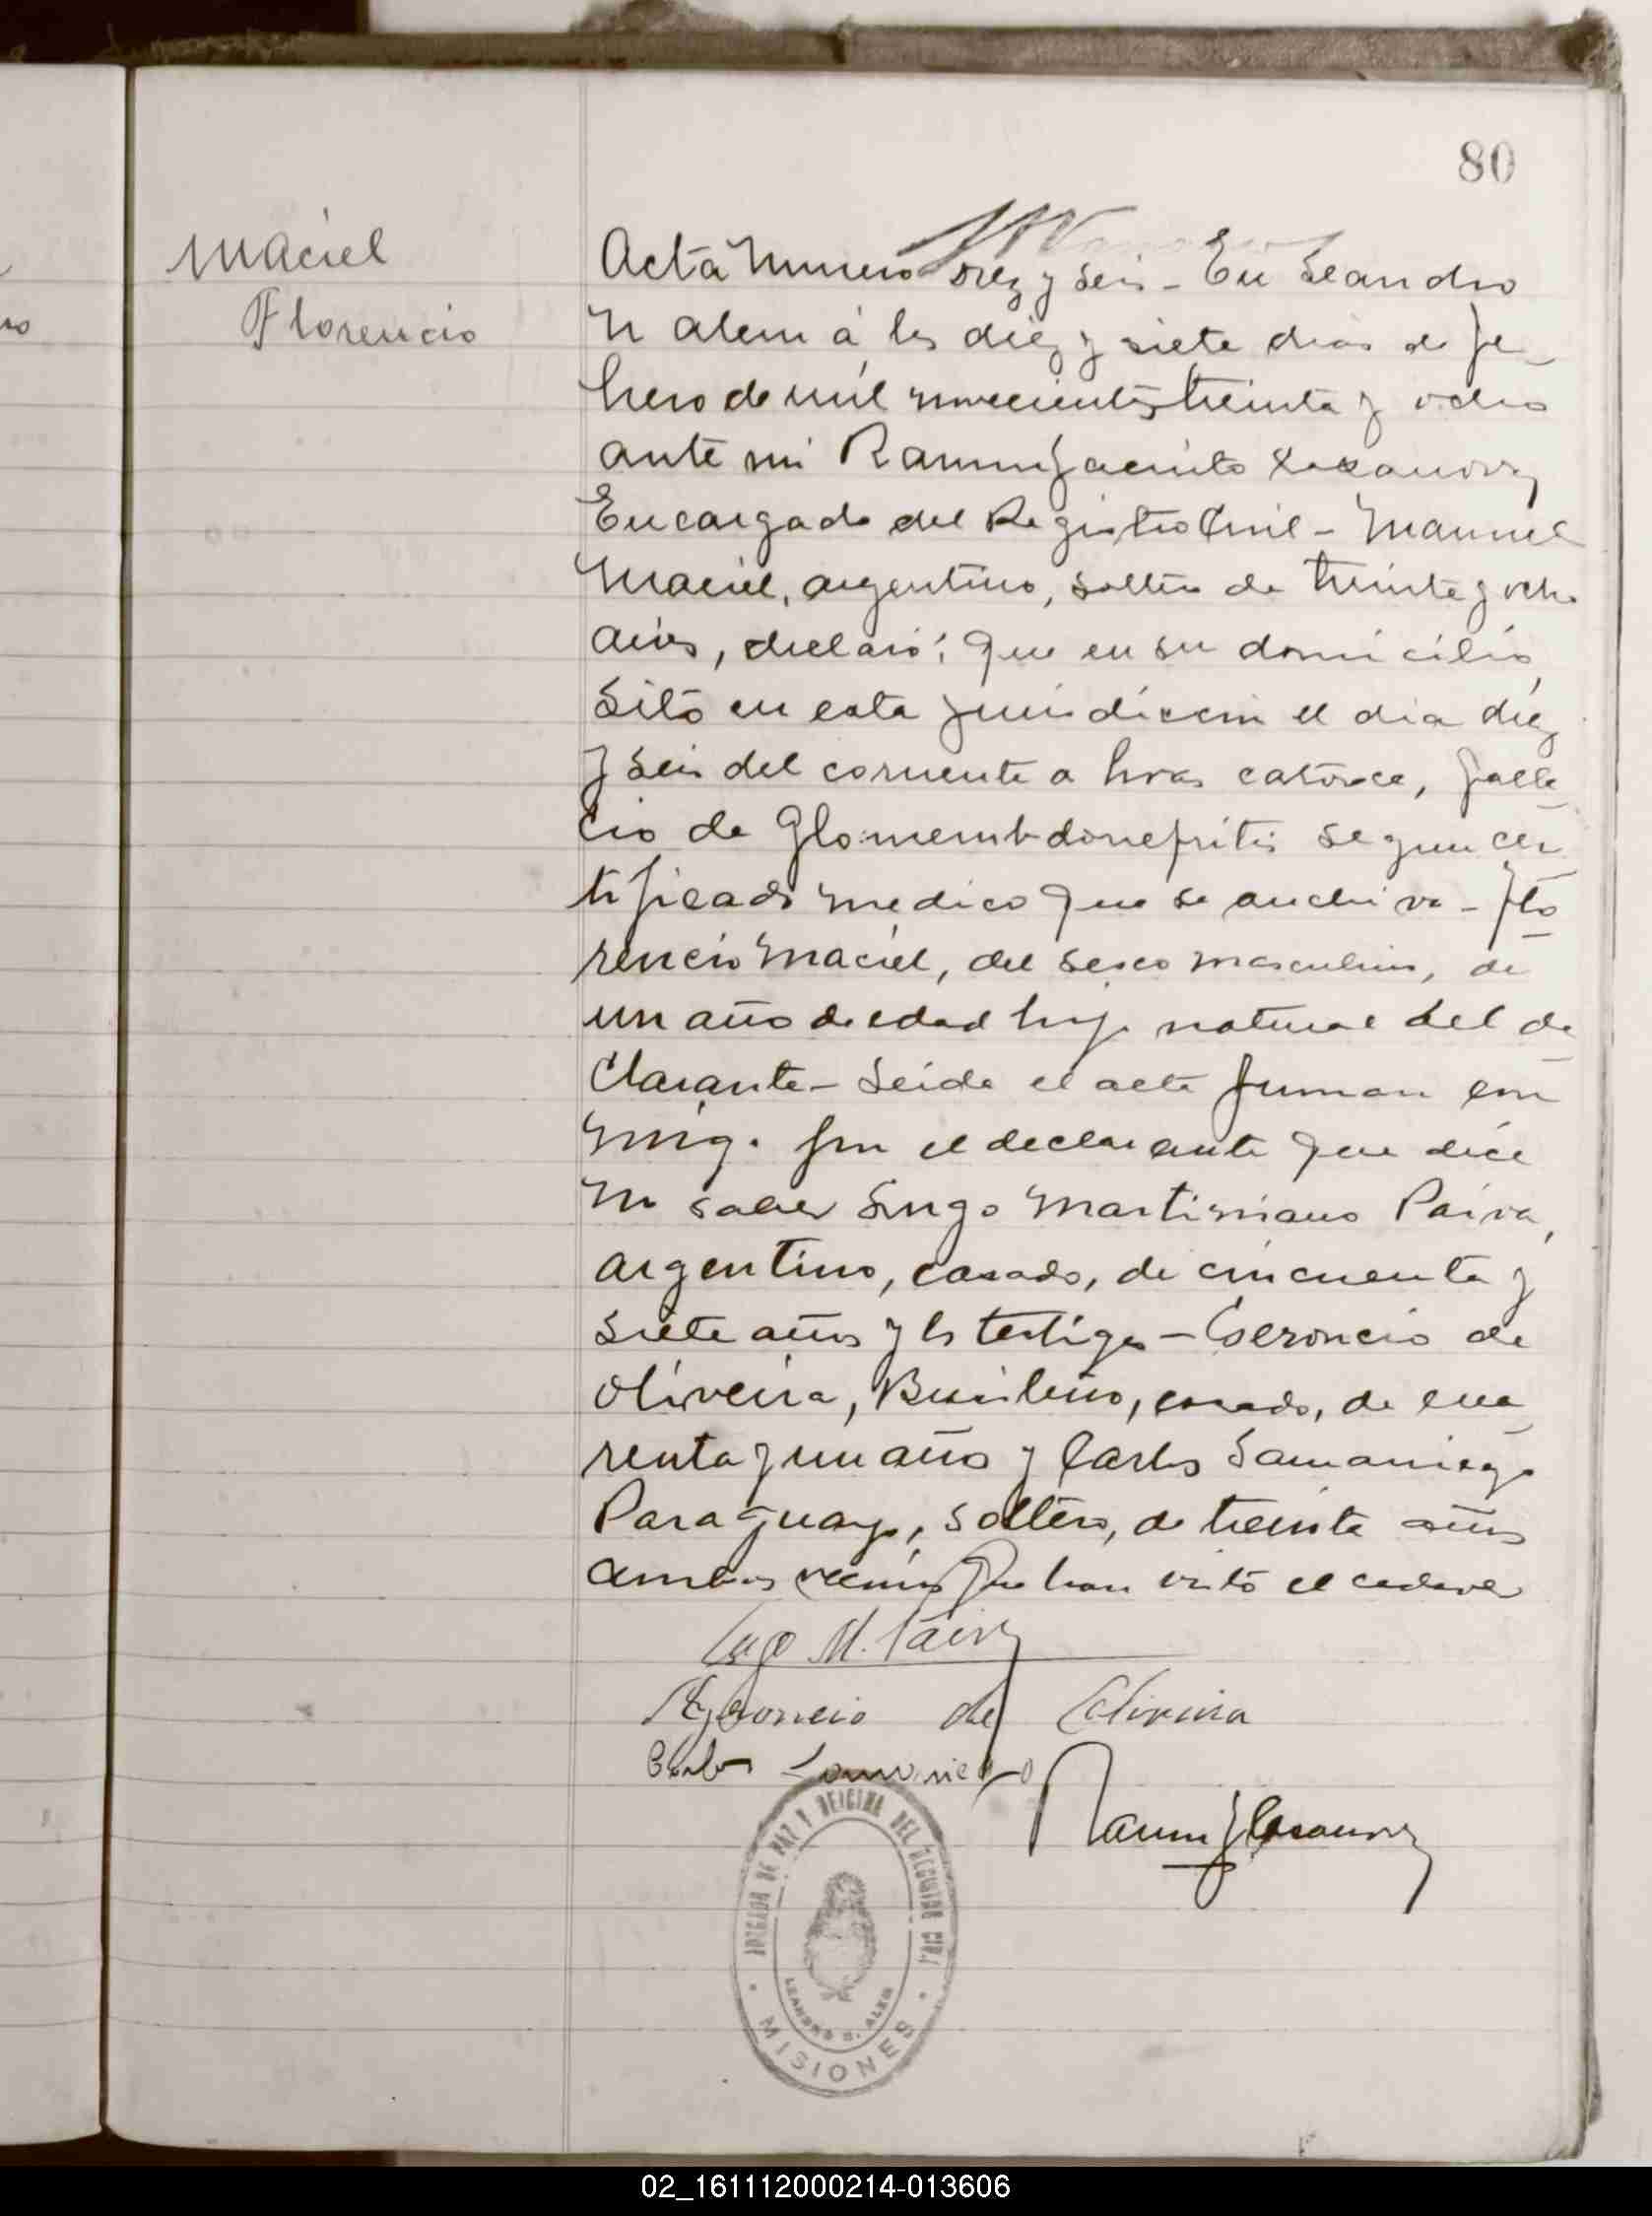 80
Maciel
Florencio
Acta Numero diez y seis - En Leandro
N Alem á los diez y siete dias de fe_
brero de mil novecientos treinta y ocho
ante mi Ramon Jacinto Casanova
Encargado del Registro Civil - Manuel
Maciel, argentino, soltero de treinta y ocho
años, declaró: Que en su domicilio
sito en esta jurisdiccion el dia diez
y seis del corriente a horas catorce, falle_
cio de segun cer_
tificado medico que se archiva - Flo_
rencio Maciel, del sexo masculino, de
un año de edad hijo natural del de_
clarante - Leida el acta firman con
migo por el declarante que dice
no saber Lugo Martiniano Paiva,
argentino, casado, de cincuenta y
siete años y los testigos - Geroncio de
Oliveira, Brasileño, casado, de cua_
renta y un años y Carlos Samaniego
Paraguayo, soltero, de treinta años
ambos vecinos que han visto el cadaver
Lugo M. Paiva
de Oliveira
Carlos Samaniego
Ramon J Casanova
JUZGADO DE PAZ Y OFICINA DEL REGISTRO CIVIL
LEANDRO N. ALEM
MISIONES
02_161112000214-013606